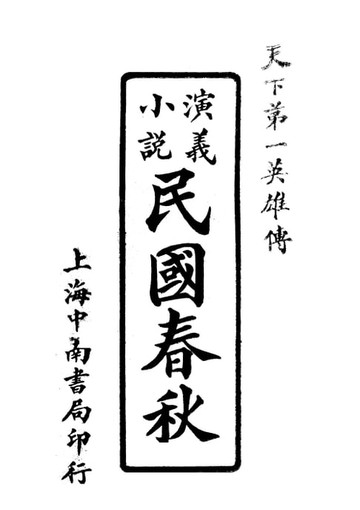 天下第一英雄傳
演義
小説
民國春秋
上海中南書局印行